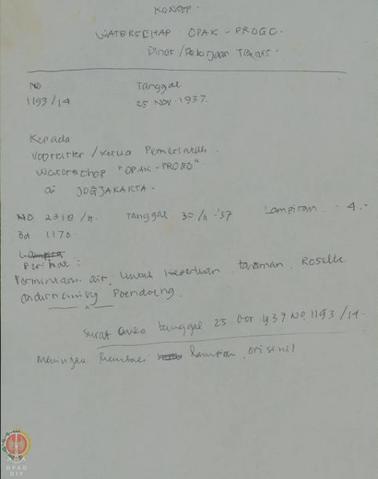 KONSEP
WATERSCHAP OPAK - PROGO.
Dinas / Pekerjaan Teknis
No Tanggal
1193/14 25 NOV. 1937.
Kepada
Voorzitter / Ketua Pemerintah
Waterschap "OPAK-PROGO"
di JOGJAKARTA.
No 2310/ Tanggal 30/ -'37 Lampiran 4.-
Bd 1170.
Perihal:
Permintaan air, untuk keperluan tanaman Rosella
onderneming Poendoeng.
Surat tanggal 25 1937 No 1193/14.
kembali lampiran orisinil
DPAD
DIY